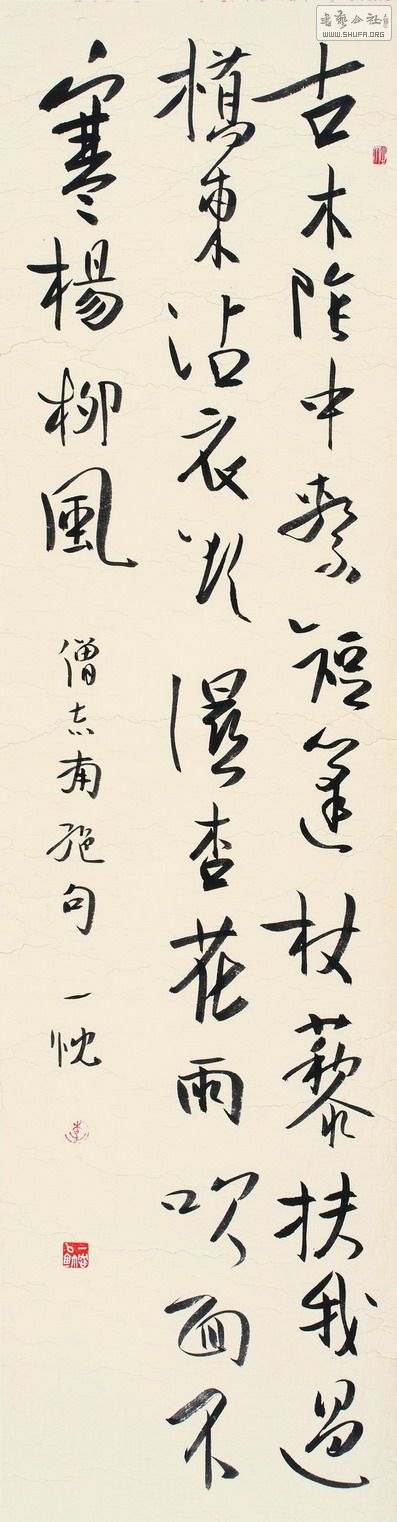 古木陰中繫短篷杖藜扶我過
橋東沾衣欲濕杏花雨吹面不
寒楊柳風
僧志南絕句 一忱
李
書藝公社
WWW.SHUFA.ORG